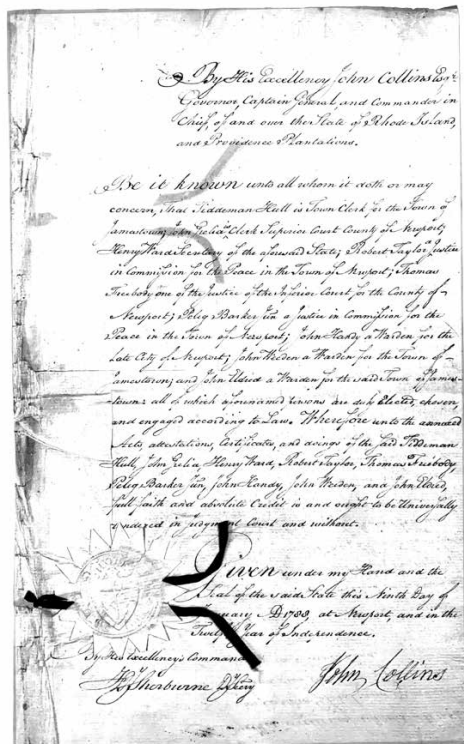 By His Excellency John Collins Esqr.
Governor, Captain General, and Commander in
Chief, of and over the State of Rhode Island,
and Providence Plantations.
Be it known unto all whom it doth or may
concern, That Tiddeman Hull is Town Clerk for the Town of
Jamestown; John Grelia Clerk Superior Court County of Newport;
Henry Ward Secretary of the aforesaid State; Robert Taylor a Justice
in Commission for the Peace in the Town of Newport; Thomas
Freebody one of the Justice of the Inferior Court for the County of
Newport; Peleg Barker Jun a Justice in Commission for the
Peace in the Town of Newport; John Handy a Warden for the
Late City of Newport; John Weeden a Warden for the Town of
Jamestown; and John Eldred a Warden for the said Town of James-
town: all of which aforenamed Persons are duly Elected, chosen,
and engaged according to Law. Wherefore unto the annexed
Acts, attestations, Certificates, and doings of the said Tiddeman
Hull, John Grelia Henry Ward, Robert Taylor, Thomas Freebody
Peleg Barker Jun, John Handy, John Weeden, and John Eldred,
full faith and absolute Credit is and ought to be Universally
rendered in Judgment Court and without.
Given under my Hand and the
Seal of the said State this Ninth Day of
February AD 1788, at Newport, and in the
Twelfth Year of Independence.
By His Excellency's Command
Sherburne D Secry
John Collins